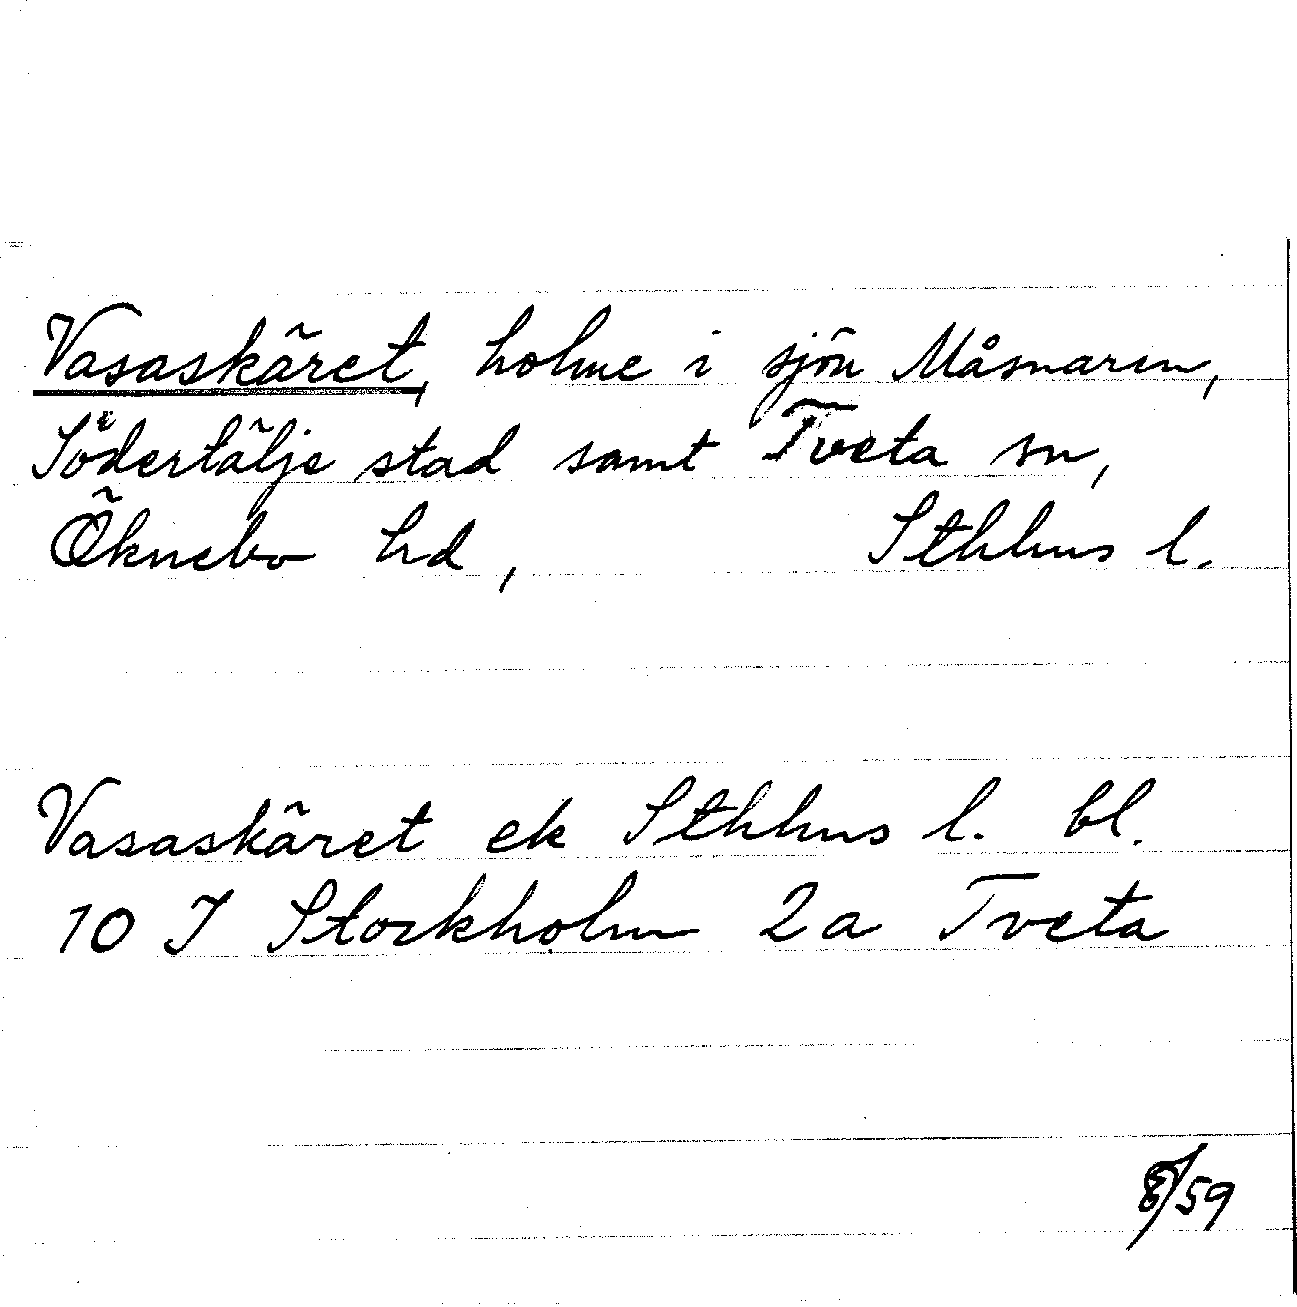 Vasaskäret, holme i sjön Måsnaren,
Södertälje stad samt Tveta sn,
Öknebo hd, Sthlms l.
Vasaskäret ek Sthlms l. bl.
10 I Stockholm 2a Tveta
/59